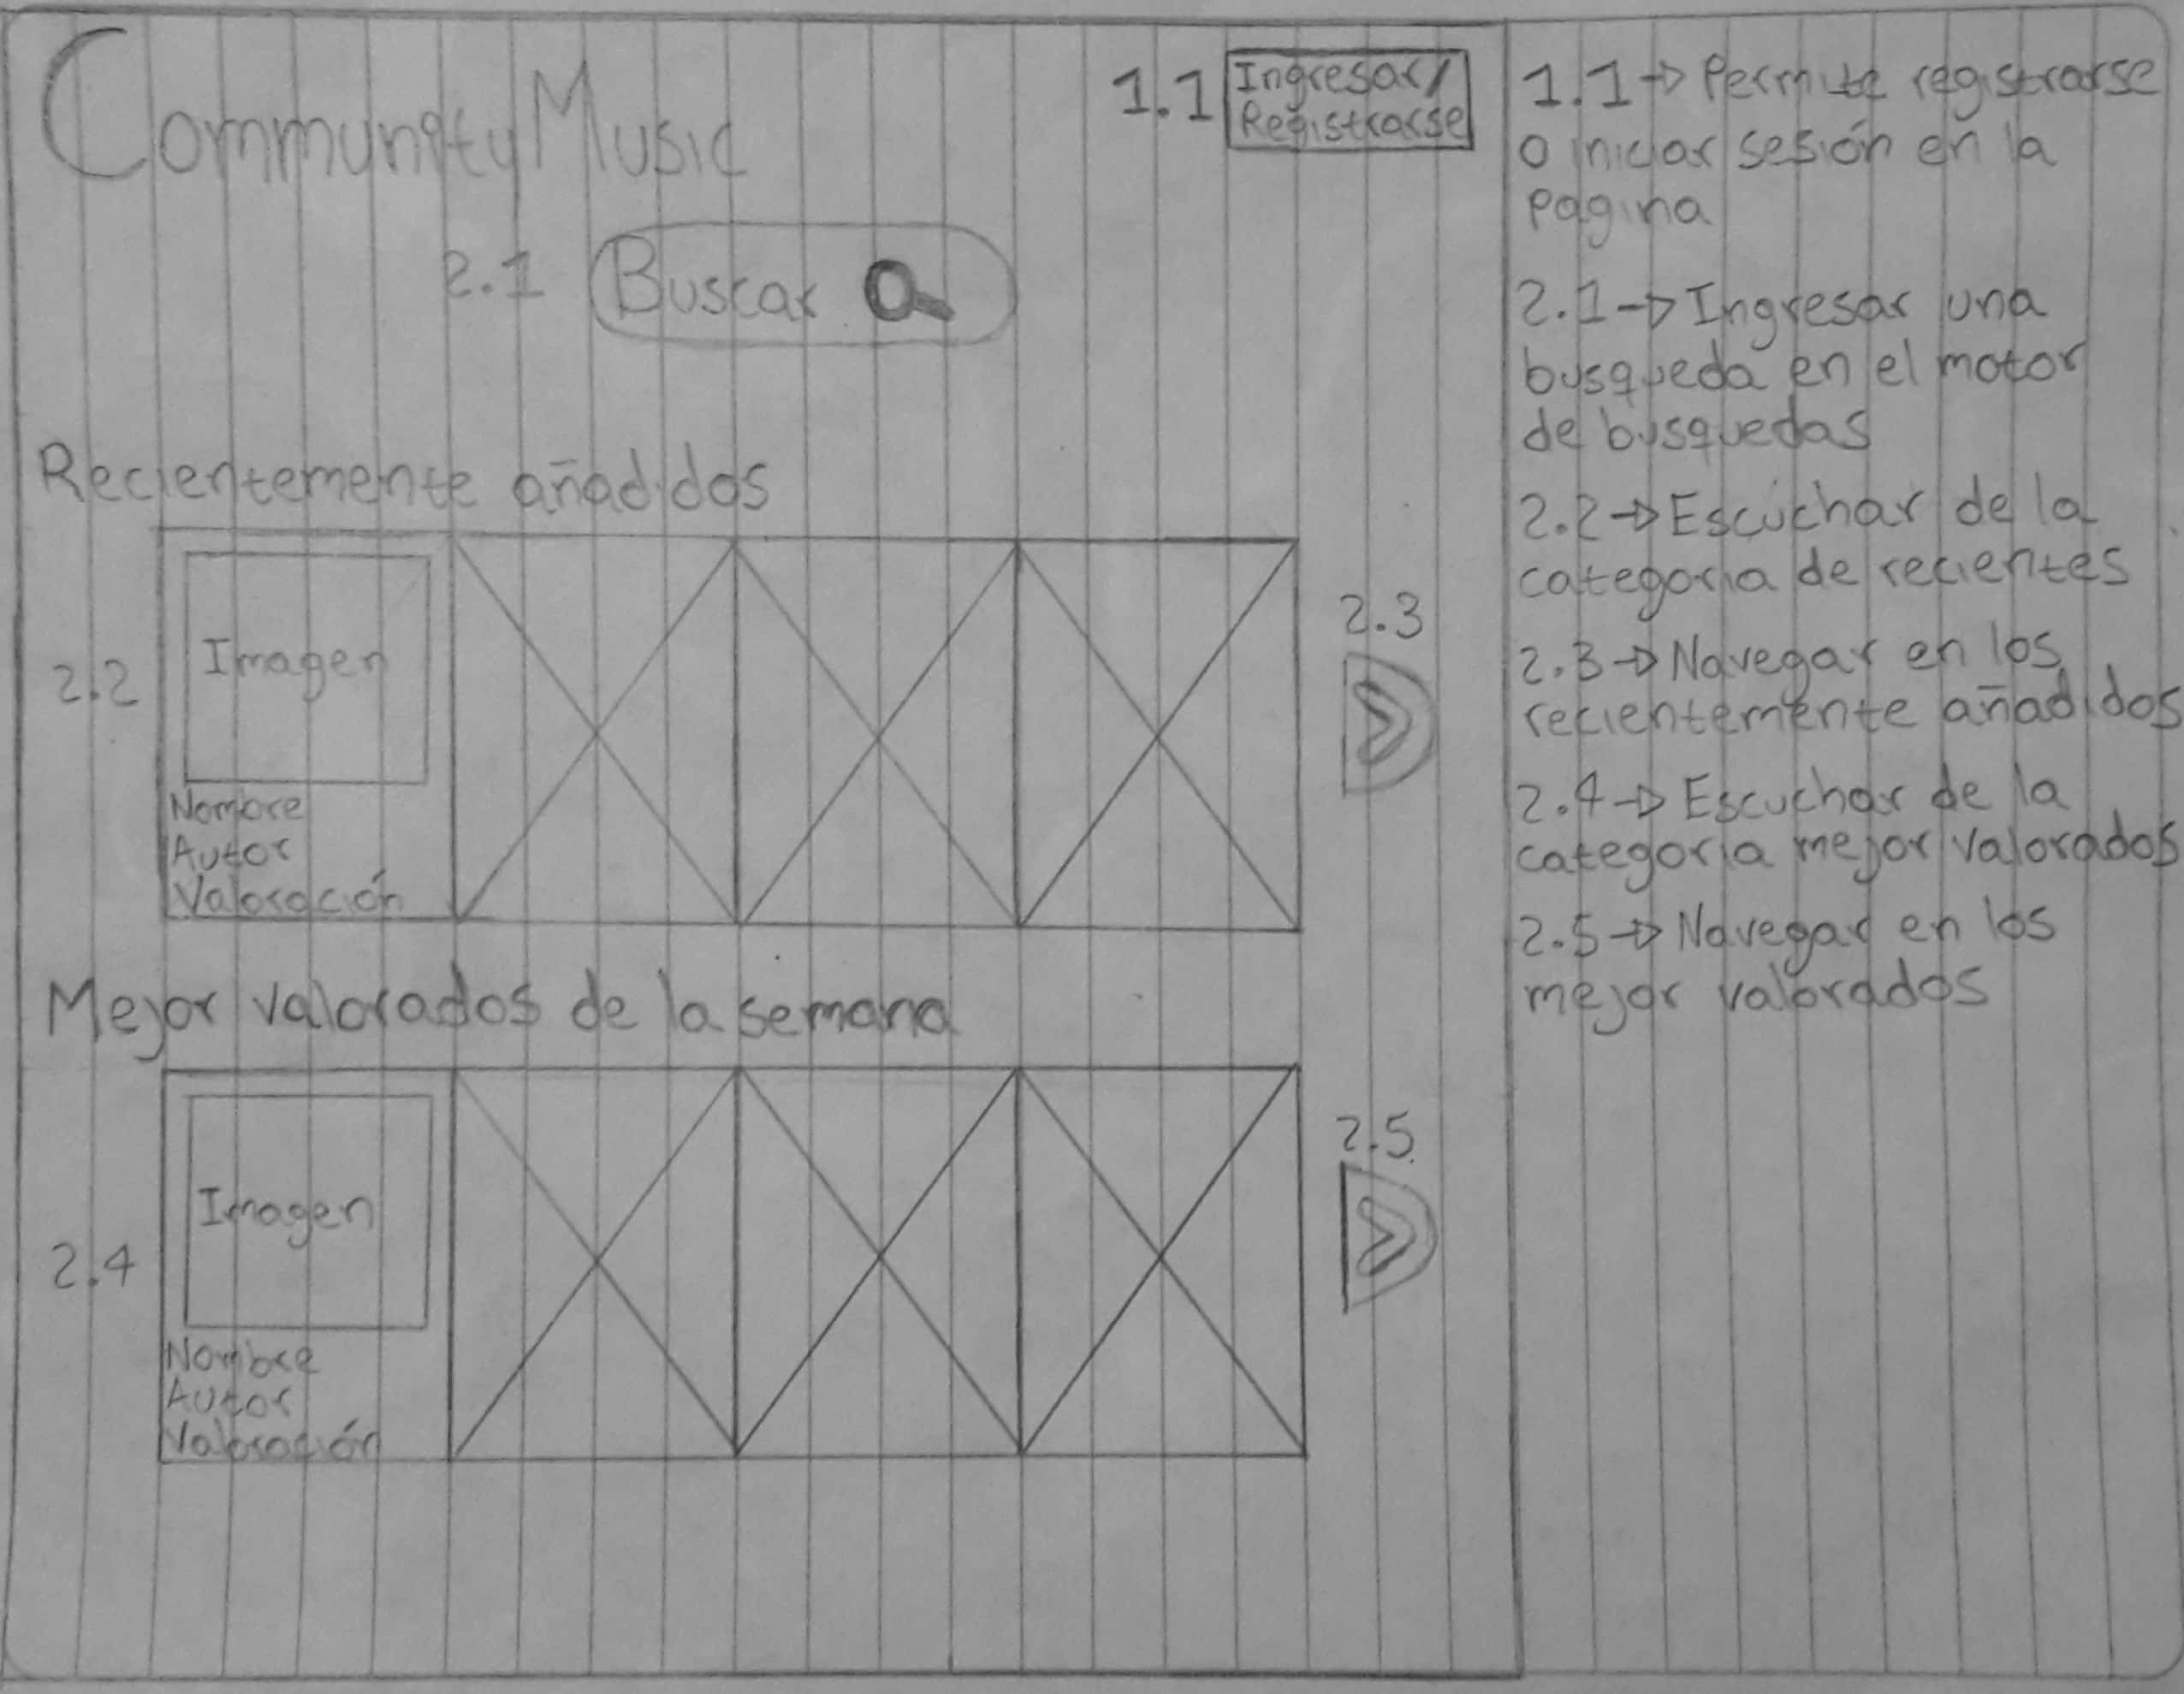 CommunityMusic
1.1 Ingresar/
Registrarse
2.1 Buscar
Recientemente añadidos
2.2
Imagen
Nombre
Autor
Valoración
2.3
Mejor valorados de la semana
2.4
Imagen
Nombre
Autor
Valoración
2.5
1.1→ Permite registrarse
o iniciar sesión en la
pagina
2.1→ Ingresar una
busqueda en el motor
de busquedas
2.2→ Escuchar de la
categoria de recientes
2.3→ Navegar en los
recientemente añadidos
2.4→ Escuchar de la
categoria mejor valorados
2.5→ Navegar en los
mejor valorados